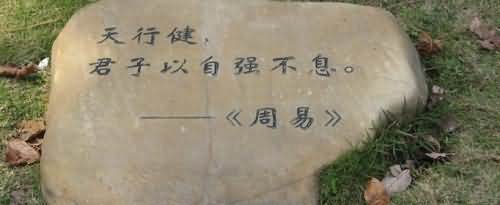 天行健，
君子以自强不息。
——《周易》